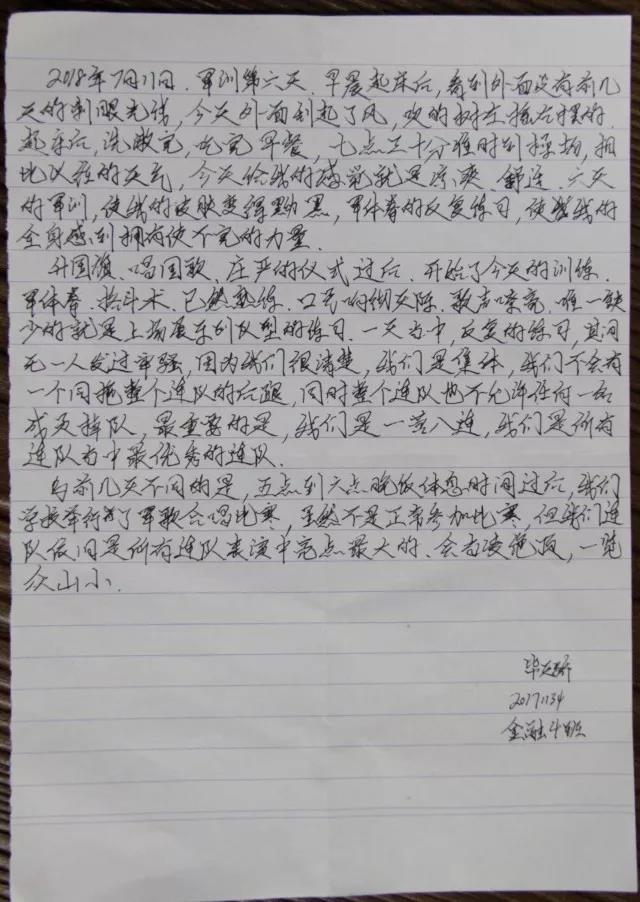 2018年7月11日.军训第六天.早晨起床后,看到外面没有前几
天的刺眼光线,今天外面刮起了风,吹的树左摇右摆的.
起床后,洗漱完,吃完早餐,七点三十分准时到操场,相
比以往的天气,今天给我的感觉就是凉爽.舒适.六天
的军训,使我的皮肤变得黝黑,军体拳的反复练习,使我的
全身感到拥有使不完的力量.
升国旗.唱国歌.庄严的仪式过后.开始了今天的训练.
军体拳.格斗术.已然熟练.口号响彻天际.歌声嘹亮.唯一缺
少的就是上场展示列队型的练习.一天当中,反复的练习,其间
无一人发过牢骚,因为我们很清楚,我们是集体,我们不会有
一个同拖整个连队的后腿,同时整个连队也不允许任何一名
成员掉队,最重要的是,我们是一营八连,我们是所有
连队当中最优秀的连队.
与前几天不同的是,五点到六点晚饭休息时间过后,我们
学校举行了军歌合唱比赛,虽然不是正常参加比赛,但我们连
队依旧是所有连队表演中亮点最大的.会当凌绝顶,一览
众山小.
20171134
金融4班